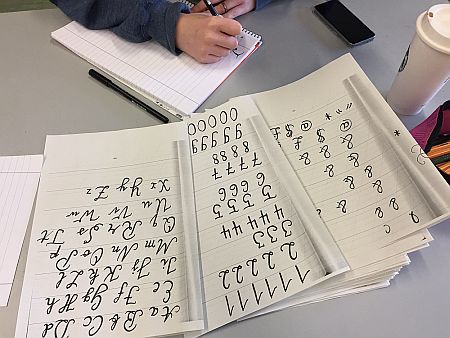 Aa Bb Cc Dd
Ee Ff Gg Hh
Ii Jj Kk Ll
Mm Nn Oo Pp
Qq Rr Ss Tt
Uu Vv Ww
Xx Yy Zz
1 1 1 1 1
2 2 2 2 2
3 3 3
4 4 4 4
5 5 5
6 6 6
7 7 7
8 8 8 8
9 9 9 9 9
0 0 0 0 0
& &
& &
& &
@ $ £